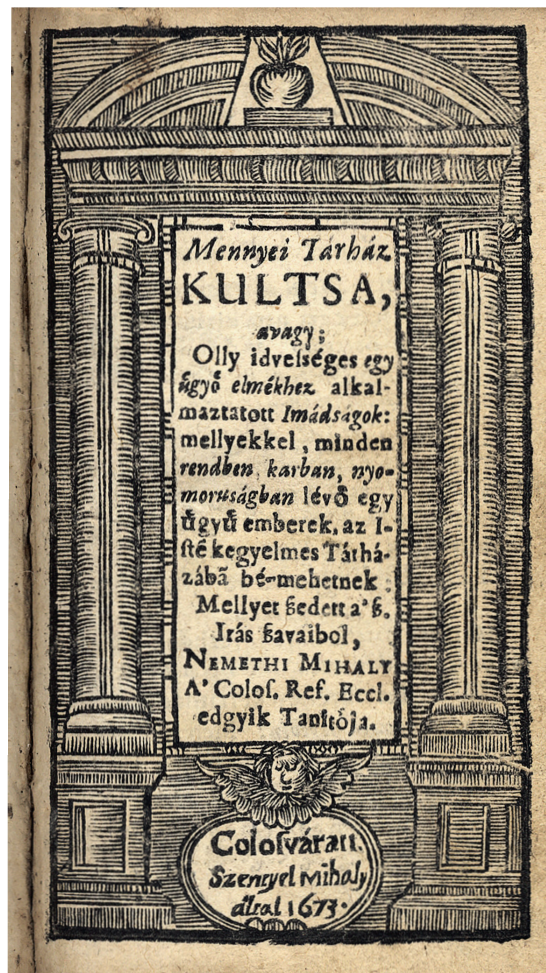 Mennyei Tárház
KULTSA,
avagy;
Olly idveſséges egy
ügyö elmékhez alkal-
maztatott Imádságok:
mellyekkel, minden
rendben, karban, nyo-
moruságban lévő egy
ügyű emberek, az I-
ſtē kegyelmes Tárhá-
zábā bé-mehetnek:
Mellyet ßedett a' ß.
Irás ßavaibol,
NEMETHI MIHALY
A' Coloſ. Ref. Eccl.
edgyik Tanítója.
Coloſváratt.
Szentyel Mihaly
által 1673.